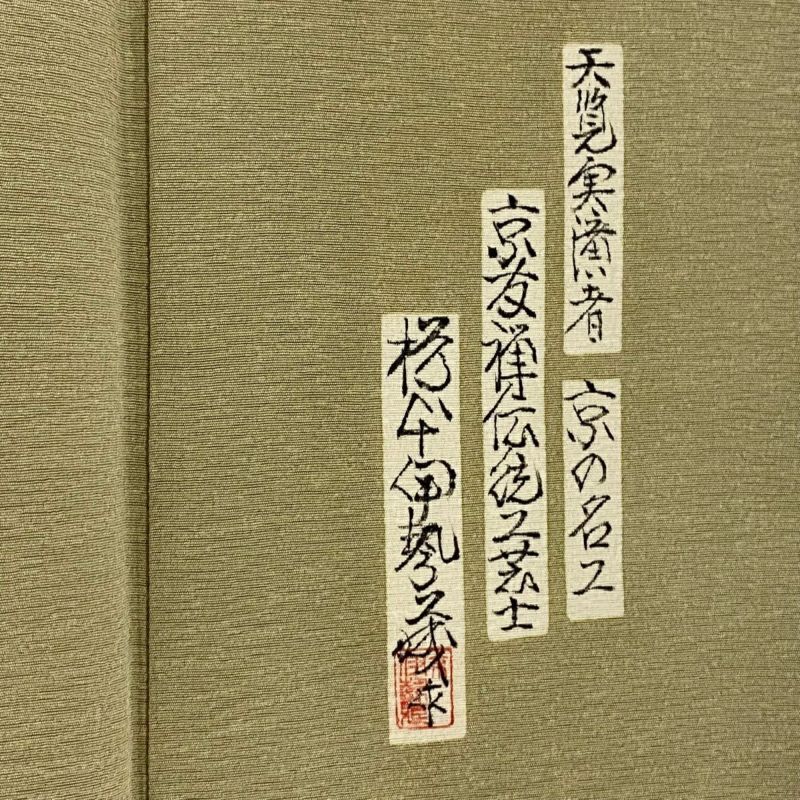 天覧実演者 京の名工
京友禅伝統工芸士
伊勢